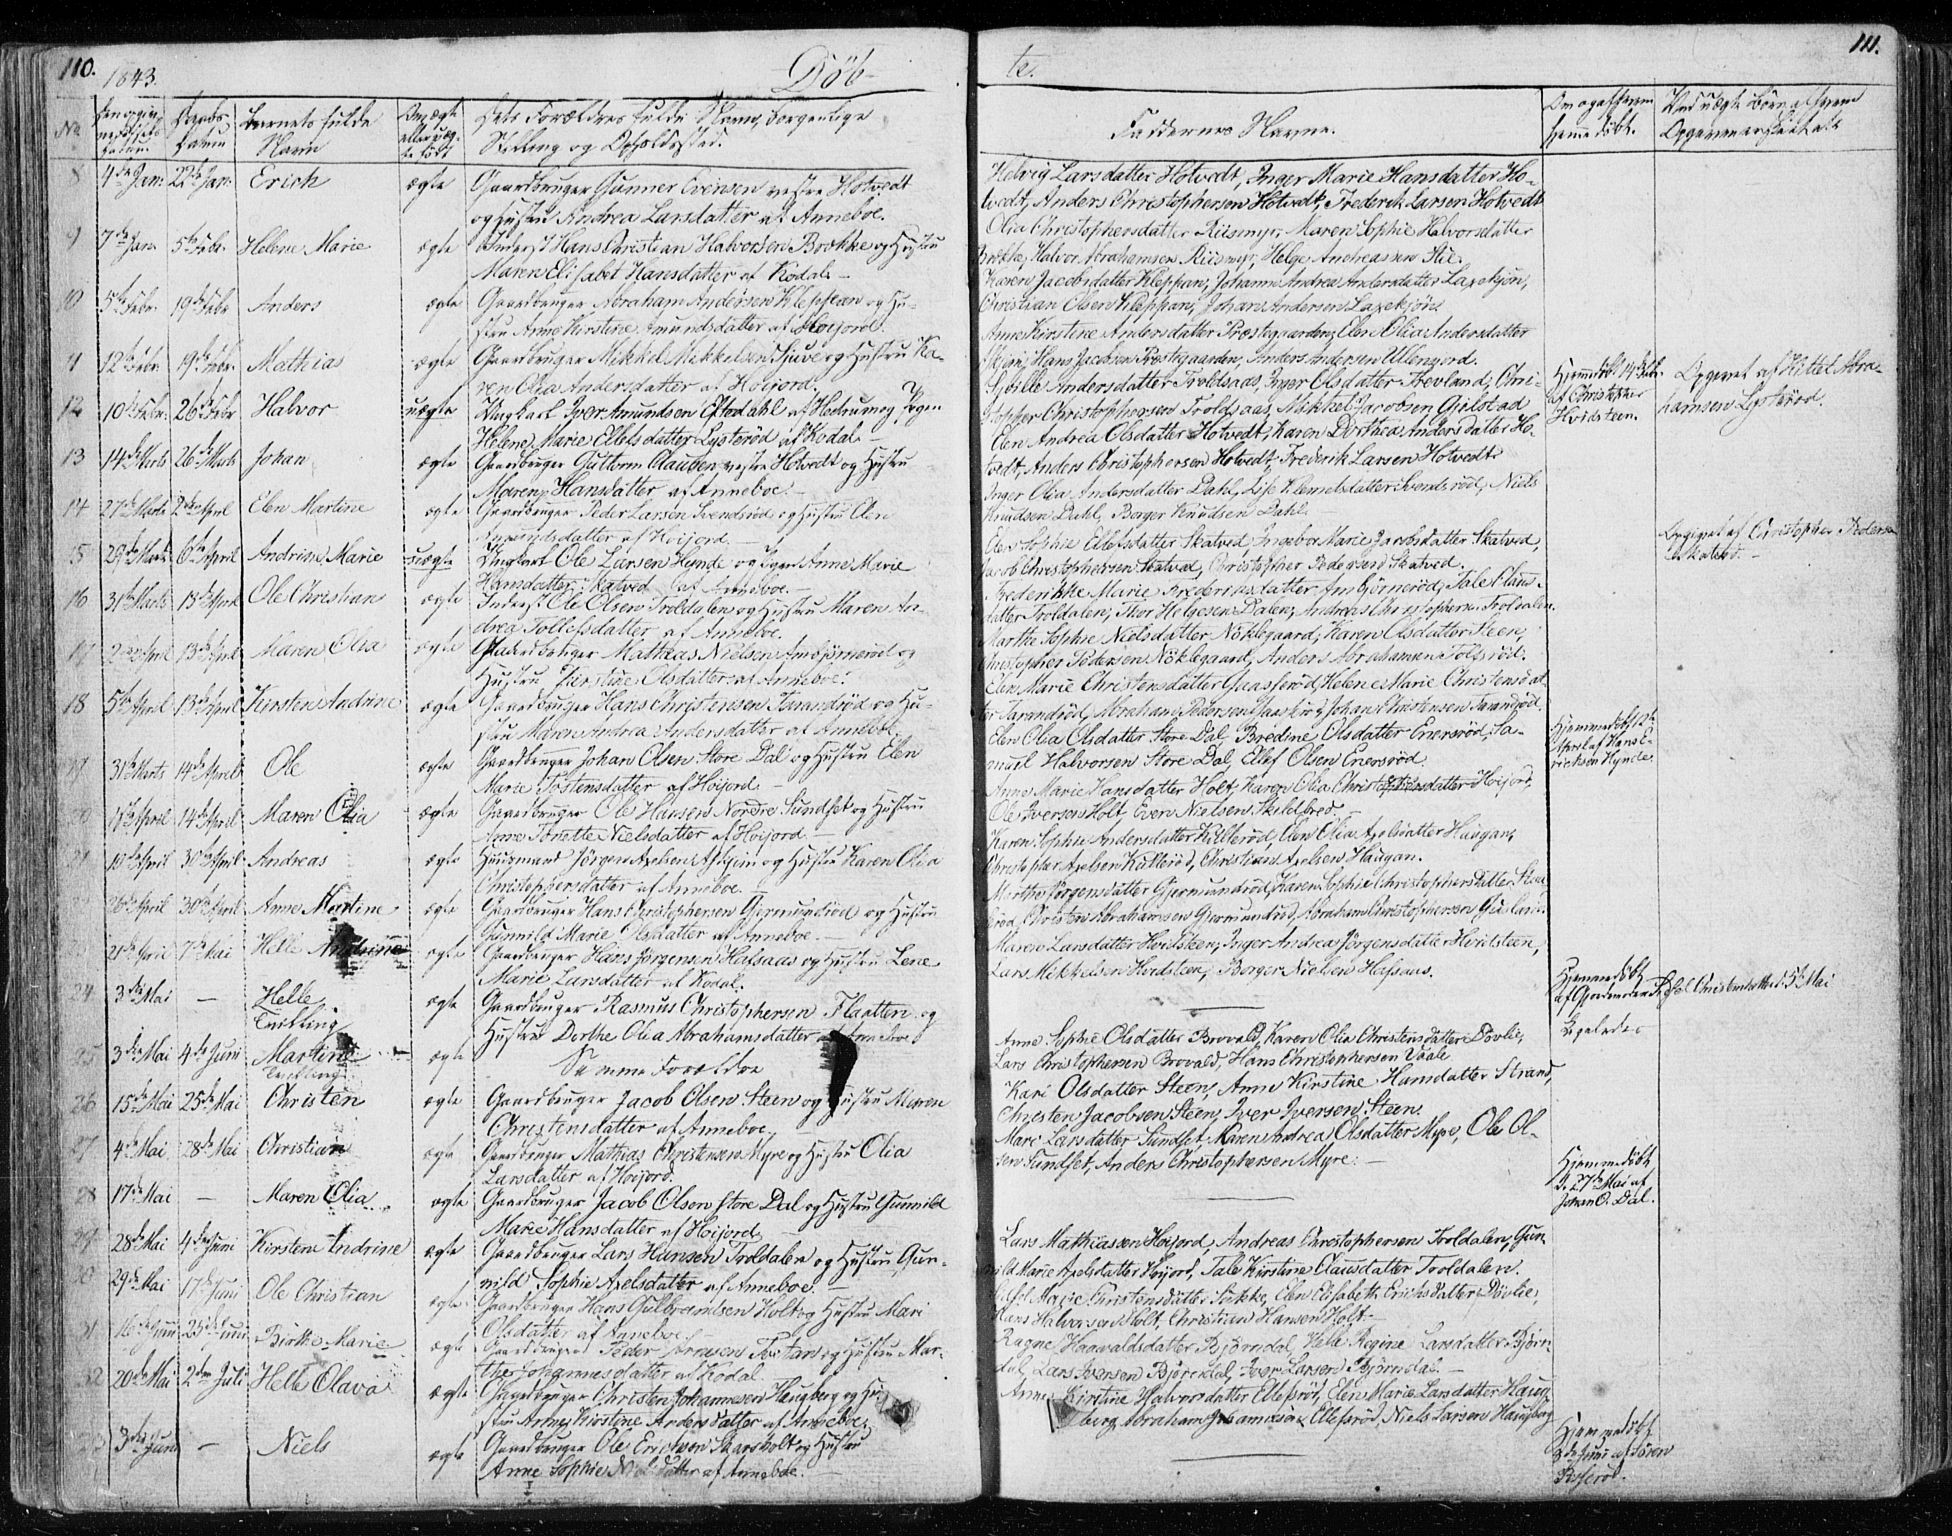 110.
1843.
Døb-
No
Barnets fulde
Navn
Dets Forældres fulde Navn, borgerlige
Stilling og Opholdssted.
8 4de Jan. 22de Jan. Erich ægte Gaardbruger Gunner Evensen vestre Hotvedt
og Hustru Andrea Larsdatter af Anneboe.
9 7de Jan. 5te Febr. Helene Marie ægte Inderst Hans Christian Halvorsen Brække og Hustru
Maren Elisabet Hansdatter af Kodal.
10 5te Febr. 19de Febr. Anders ægte Gaardbruger Abraham Andersen Kleppean og Hu-
stru Anne Kirstine Amundsdatter af Høijord.
11 12te Febr. 19de Febr. Mathias ægte Gaardbruger Mikkel Mikkelsen Skjuve og Hustru Ka-
ren Olia Andersdatter af Høijord.
12 10de Febr. 26de Febr. Halvor uægte Ungkarl Iver Amundsen af Hedrum og Pigen
Helene Marie Ellefsdatter Lysterød af Kodal.
13 14de Marts 26de Marts Johan ægte Gaardbruger Guttorm Clausen vestre Hotvedt og Hustru
Maren Hansdatter af Anneboe.
14 27de Marts 2den April Elen Martine ægte Gaardbruger Peder Larsen Svendsrød og Hustru Elen
Amundsdatter af Høijord.
15 29de Marts 6te April Andrine Marie uægte Ungkarl Ole Larsen Hynde og Pigen Anne Marie
Hansdatter Skatved af Anneboe.
16 31te Marts 13de April Ole Christian ægte Inderst Ole Olsen Troldalen og Hustru Maren An-
drea Tollefsdatter af Anneboe.
17 2den April 13de April Maren Olia ægte Gaardbruger Mathias Nielsen Ambjørnerød og
Hustru Kirstine Olsdatter af Anneboe.
18 5te April 13de April Kirsten Andrine ægte Gaardbruger Hans Christensen Tarandrød og Hu-
stru Maren Andrea Andersdatter af Anneboe.
19 31te Marts 14de April Ole ægte Gaardbruger Johan Olsen Store Dal og Hustru Elen
Marie Tostensdatter af Høijord.
20 April 14de April Maren Olia ægte Gaardbruger Ole Hansen Nordre Sundset og Hustru
Anne Tonette Nielsdatter af Høijord.
21 10de April 30de April Andreas ægte Huusmand Jørgen Axelsen Askjem og Hustru Karen Olia
Christophersdatter af Anneboe.
26de April 30de April Anne Martine ægte Gaardbruger Hans Christophersen Gjermundrød og Hustru
Gunnild Marie Olsdatter af Anneboe.
21de April 7de Mai Helle Andrine ægte Gaardbruger Hans Jørgensen Hafsaas og Hustru Lene
Marie Larsdatter af Kodal.
24 3die Mai — Helle ægte Gaardbruger Rasmus Christophersen Flaatten og
Tvilling Hustru Dorthe Olia Abrahamsdatter af Anneboe
25 3die Mai 4de Juni Martine ægte Samme Forældre
Tvilling
26 15de Mai 25de Mai Christen ægte Gaardbruger Jacob Olsen Steen og Hustru Maren
Christensdatter af Anneboe.
27 4de Mai 28de Mai Christian ægte Gaardbruger Mathias Christensen Myre og Hustru Olia
Larsdatter af Høijord.
28 17de Mai — Maren Olia ægte Gaardbruger Jacob Olsen store Dal og Hustru Gunnild
Marie Hansdatter af Høijord.
29 28de Mai 4de Juni Kirstine Andrine ægte Gaardbruger Lars Hansen Troldalen og Hustru Gun-
nild Sophie Axelsdatter af Anneboe.
30 29de Mai 17de Juni Ole Christian ægte Gaardbruger Hans Gulbrandsen Holt og Hustru Mari
Olsdatter af Anneboe.
31 16de Juni 25de Juni Birthe Marie ægte Gaardbruger Peder og Hustru Mar-
the Johannesdatter af Kodal.
32 20de Mai 2den Juli Helle Olava ægte Gaardbruger Christen Johannesen Haugberg og Hu-
stru Anne Kirstine Andersdatter af Anneboe.
3die Juni — Niels ægte Gaardbruger Ole Erichsen Skarsholt og Hustru
Anne Sophie af Anneboe.
te.
111.
Faddernes Navne.
Om og af hvem
hjemmedøbt.
Helvig Larsdatter Hotvedt, Inger Marie Hansdatter Ho-
tvedt, Anders Christophersen Hotvedt, Frederik Larsen Hotvedt
Olia Christophersdatter Riismyr, Maren Sophie Halvorsdatter
Brække, Halvor Abrahamsen Riismyr, Helge Andreassen Stie.
Karen Jacobsdatter Kleppan, Johanne Andrea Andersdatter Laxekjøn,
Christian Olsen Kleppan, Johan Andersen Laxekjøn.
Anne Kirstine Andersdatter Præstegaarden, Elen Olia Andersdatter
Skjuv, Hans Jacobsen Præstegaarden, Anders Andersen Ullengerd.
Sybille Andersdatter Troldsaas, Inger Olsdatter Trevland, Chri-
stopher Christophersen Troldsaas, Mikkel Jacobsen Gjelstad
Hjemmedøbt 14de Febr.
af Christopher
Hvidsteen.
Opgivet af Kittel Abra-
hamsen Lysterød.
Elen Andrea Olsdatter Hotvedt, Karen Dorthea Andersdatter Ho-
tvedt, Anders Christophersen Hotvedt, Frederik Larsen Hotvedt
Inger Olia Andersdatter Dahl, Lise Klemetsdatter Svendsrød, Niels
Knudsen Dahl, Borger Knudsen Dahl.
Elen Sophie Ellefsdatter Skatved, Ingebor Marie Jacobsdatter Skatved,
Jacob Christophersen Skatved, Christopher Pedersen Skatved.
Opgivet af Christopher Pedersen
Skatvet.
Frederikke Marie Frederiksdatter Ambjørnerød, Tale Claus-
datter Troldalen, Thor Helgesen Dalen, Andreas Christophersen Troldalen.
Marthe Sophie Nielsdatter Nøklegaard, Karen Olsdatter Steen,
Christopher Pedersen Nøklegaard, Anders Abrahamsen Tolfsrød.
Elen Marie Christensdatter Gaaserød, Helene Marie Christensdat-
ter Tarandrød, Abraham Pedersen Gaaserød, Johan Christensen Tarandrød.
Elen Olia Olsdatter Store Dal, Bredine Olsdatter Enersrød, Sa-
muel Halvorsen Store Dal, Ellef Olsen Enersrød.
Hjemmedøbt
April af Hans E-
richsen Hynde.
Anne Marie Hansdatter Holt, Karen Olia Christophersdatter Høijord,
Ole Iversen Holt, Even Nielsen Skjelbred.
Karen Sophie Andersdatter Kulterød, Elen Olia Axelsdatter Haugan,
Christopher Axelsen Kulterød, Christian Axelsen Haugan.
Marthe Jørgensdatter Gjermundrød, Karen Sophie Christophersdatter
Christen Abrahamsen Gjermundrød, Abraham Christophersen
Maren Larsdatter Hvidsteen, Inger Andrea Jørgensdatter Hvidsteen,
Lars Mikkelsen Hvidsteen, Borger Nielsen Hafsaas.
Hjemmedøbt
af Gjordemoder Christensdatter d. 5te Mai
Anne Sophie Olsdatter Brovald, Karen Olia Christensdatter Døvle,
Lars Christophersen Brovald, Hans Christophersen Vaale
Kari Olsdatter Steen, Anne Kirstine Hansdatter Strand,
Christen Jacobsen Steen, Iver Iversen Steen.
Mari Larsdatter Sundset, Maren Andrea Olsdatter Myre, Ole Ol-
sen Sundset, Anders Christophersen Myre.
Hjemmedøbt
d. 27de Mai af
Johan O. Dal.
Lars Mathiassen Høijord, Andreas Christophersen Troldalen, Gun-
nild Marie Axelsdatter Høijord, Tale Kirstine Clausdatter Troldalen.
Marie Christensdatter Sukke, Elen Elisabeth Erichsdatter Døvle,
Hans Halvorsen Holt, Christian Hansen Holt.
Ragne Haavaldsdatter Bjørndal, Helle Regine Larsdatter Bjørn-
dal, Lars Iversen Bjørndal, Iver Larsen Bjørndal.
Anne Kirstine Halvorsdatter Ellefsrød, Elen Marie Larsdatter Haug-
berg, Abraham Ellefsrød, Niels Larsen Haugberg
Hjemmedøbt
3die Juni af Søren